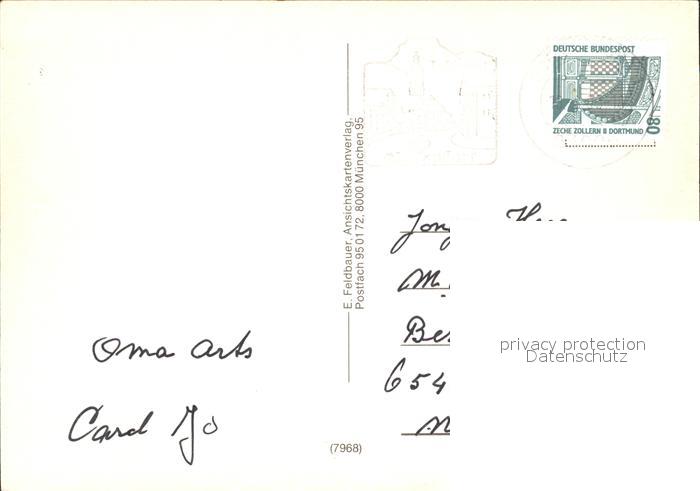 DEUTSCHE BUNDESPOST
ZECHE ZOLLERN II DORTMUND
80
E. Feldbauer, Ansichtskartenverlag,
Postfach 95 01 72, 8000 München 95
Oma arts
Card Jo
654
privacy protection
Datenschutz
(7968)